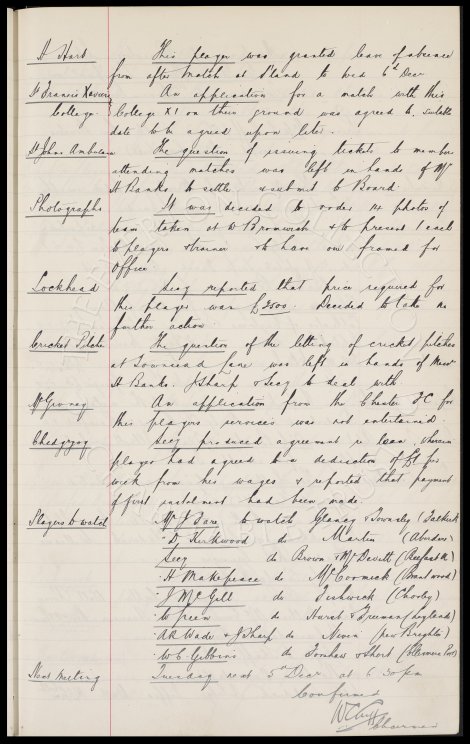 H Hart This player was granted leave of absence
from after match at S'land to Wed 6th Decr
St Francis Xaviers An application for a match with this
College College X1 on their ground was agreed to, suitable
date to be agreed upon later.
St Johns Ambulance The question of issuing tickets to members
attending matches was left in hands of Mr
H Banks to settle & submit to Board
Photographs It was decided to order 14 photos of
team taken at W Bromwich & to present 1 each
to players & trainer & to have one framed for
Office
Lockhead Secy reported that price required for
this player was £2500. Decided to take no
further action
Cricket Pitche The question of the letting of cricket pitches
at Townsend Lane was left in hands of Messrs
H Banks. J Sharp & Secy to deal with
An application from the Chester FC for
this players services was not entertained.
Chedgzoy Secy produced agreement re loan, wherein
player had agreed to a deduction of £1 per
week from his wages & reported that payment
of first instalment had been made.
Players to watch Mr J to watch & Townsley (Falkirk)
" D. Kirkwood do Martin (Aberdeen)
Secy do Brown & McDevitt (Belfast)
" H Makepeace do McCormick
" J McGill do Fishwick (Chorley)
" W Green do Hurst & Freeman (Leylands)
A R Wade & J Sharp do Niven (New Brighton)
W C Gibbins do & Short (Ellesmere Port)
Next Meeting Tuesday next 5th Decr at 6.30 pm
Confirmed
W C Cuff
Chairman